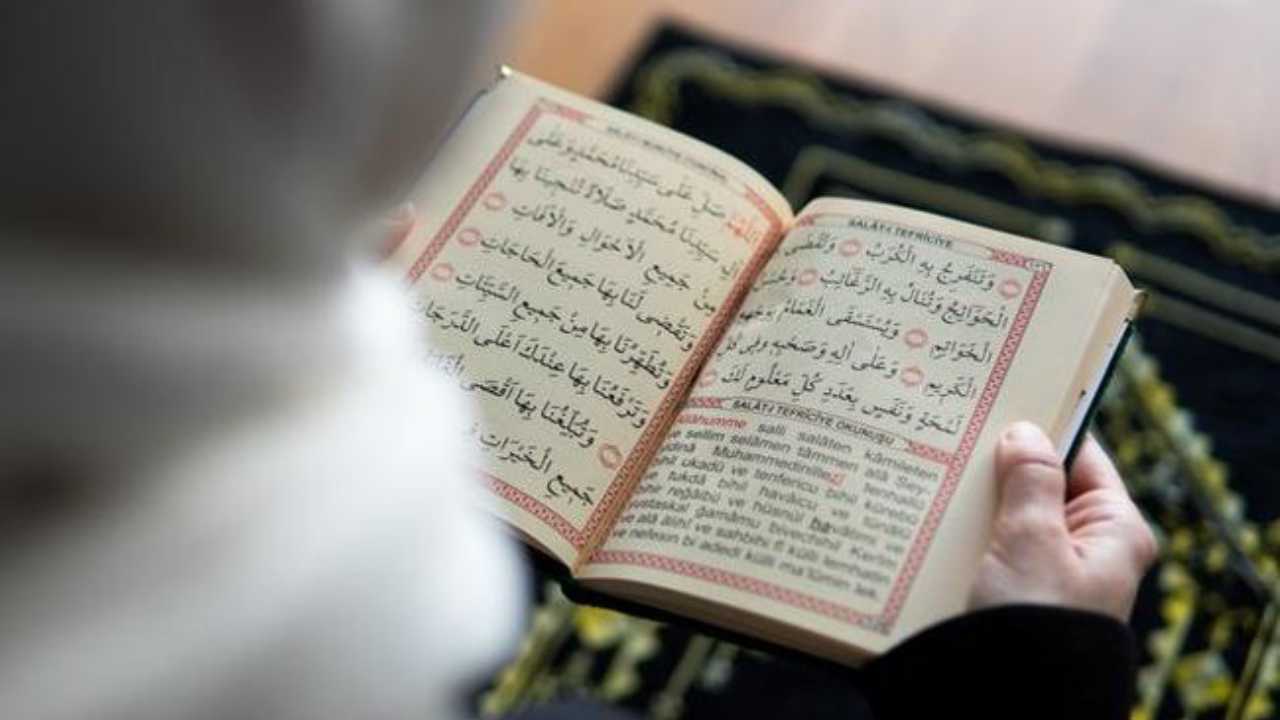 SALÂT-I TEFRİCİYE
وَتَنْفَرِجُ بِهِ الْكُرَبُ وَتُقْضَى
الْحَوَائِجُ وَتُنَالُ بِهِ الرَّغَائِبُ وَحُسْنُ
الْخَوَاتِمِ وَيُسْتَسْقَى الْغَمَامُ بِوَجْهِهِ
الْكَرِيمِ وَعَلَى اٰلِهِ وَصَحْبِهِ فِى كُلِّ
لَمْحَةٍ وَنَفَسٍ بِعَدَدِ كُلِّ مَعْلُومٍ لَكَ
SALÂT-I TEFRİCİYE OKUNUŞU
salli salâten kâmileten
ve sellim selâmen tâmmen alâ Sey-
Muhammedinillezî tenhallü
ukadü ve tenfericu bihil kürebü
tukdâ bihil havâicu ve tünâlü
reğâibü ve hüsnül havâtimi ve
ğamâmu bivechihil Kerîm
ve alâ âlihî ve sahbihi fî külli lemhatin
ve nefesin bi adedi külli ma'lûmin lek.
اَللّٰهُمَّ صَلِّ عَلَى سَيِّدِنَا مُحَمَّدٍ وَعَلَى
اٰلِ سَيِّدِنَا مُحَمَّدٍ صَلَاةً تُنْجِينَا بِهَا
مِنْ جَمِيعِ الْاَحْوَالِ وَالْاٰفَاتِ
وَتَقْضِى لَنَا بِهَا جَمِيعَ الْحَاجَاتِ
وَتُطَهِّرُنَا بِهَا مِنْ جَمِيعِ السَّيِّئَاتِ
وَتَرْفَعُنَا بِهَا عِنْدَكَ اَعْلَى الدَّرَجَاتِ
وَتُبَلِّغُنَا بِهَا اَقْصَى
جَمِيعِ الْخَيْرَاتِ